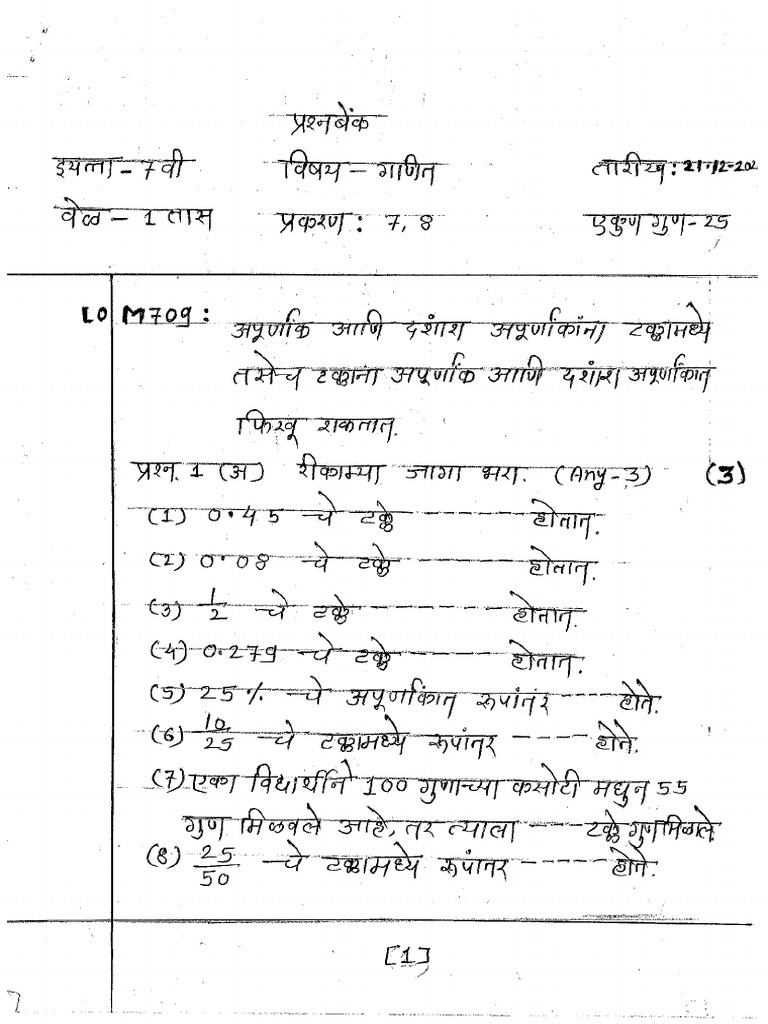 प्रश्नबेंक
इयत्ता - 7 वी विषय - गणित तारीख : 21-12-202
वेळ - 1 तास प्रकरण : 7, 8 एकुण गुण - 25
LO M709 : अपूर्णांक आणि दशांश अपूर्णांकांना टक्कामध्ये
तसेच टक्कांना अपूर्णांक आणि दशांश अपूर्णांकात
फिरवू शकतात.
प्रश्न. 1 (अ) रीकाम्या जागा भरा. (Any - 3) (3)
(1) 0.45 चे टक्के ------- होतात.
(2) 0.08 चे टक्के ------- होतात.
(3) 1/2 चे टक्के ------- होतात.
(4) 0.279 चे टक्के ------- होतात.
(5) 25% चे अपूर्णांकात रूपांतर ---- होते.
(6) 10/25 चे टक्कामध्ये रूपांतर ----- होते.
(7) एका विद्यार्थीने 100 गुणाच्या कसोटी मधुन 55
गुण मिळवले आहे, तर त्याला ---- टक्के गुण मिळाले
(8) 25/50 चे टक्कामध्ये रूपांतर ----- होते.
[1]